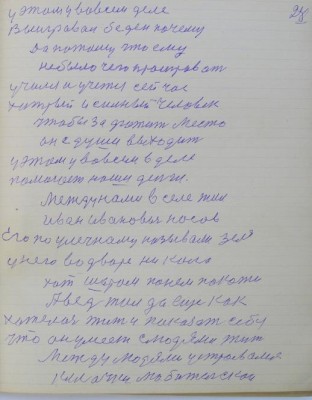 у этом у вовсем деле
Выигравал беден почему
да потому что ему
небыло чего проигрова т
учился и учется сей час
хитрый и сильный человек
чтобы за
место
он с души выходит
у этом у во всем в деле
помогают наши деньги.
Между нами в селе жил
Иван Иванович носов
Его по уличному называли
у него во дворе ни кола
хоть шаром
покати
А вед жил да еще как
жить и показат себу
что он умеет слюдями жит
Между людями